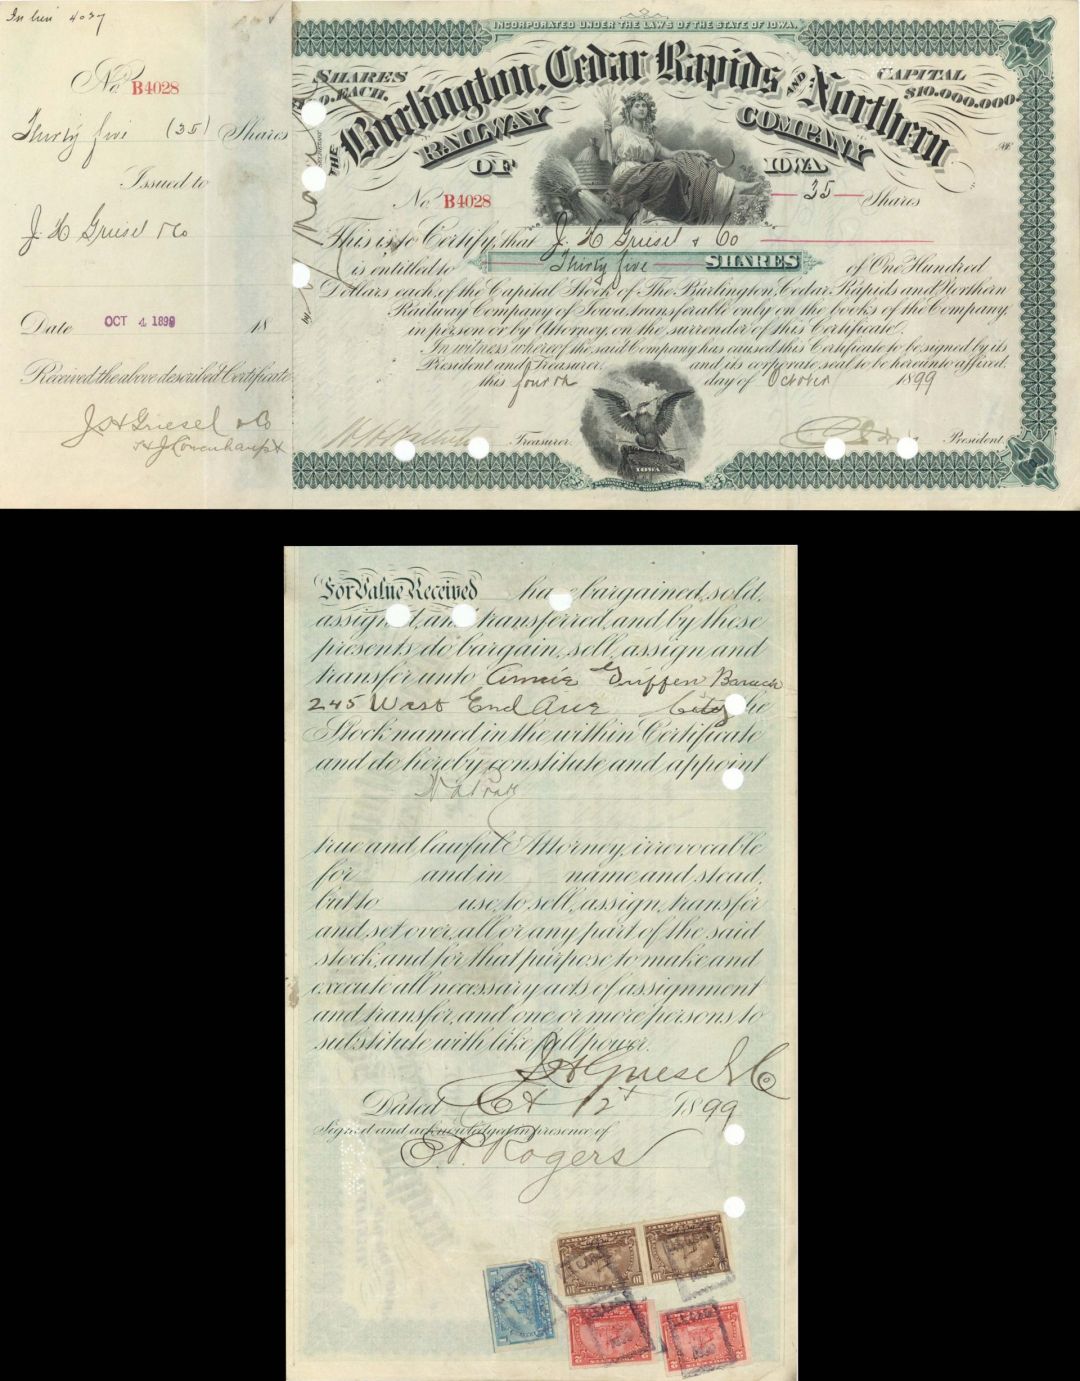 In lieu 4037
No. B4028
Thirty five (35) Shares
Issued to
J. H Griesel & Co
Date OCT 4 1899 18
Received the above described Certificate
J. H Griesel & Co
INCORPORATED UNDER THE LAWS OF THE STATE OF IOWA.
SHARES
EACH.
CAPITAL
$10,000,000
THE Burlington, Cedar Rapids AND Northern
RAILWAY COMPANY
OF IOWA
No. B4028
35 Shares
This is to Certify, that J. H Griesel & Co
is entitled to Thirty five SHARES of One Hundred
Dollars each, of the Capital Stock of The Burlington, Cedar Rapids and Northern
Railway Company of Iowa, transferable only on the books of the Company,
in person or by Attorney, on the surrender of this Certificate.
In witness whereof the said Company has caused this Certificate to be signed by its
President and Treasurer, and its corporate seal to be hereunto affixed,
this fourth day of October 1899
Treasurer.
President.
IOWA
For Value Received have bargained, sold,
assigned, and transferred, and by these
presents do bargain, sell, assign and
transfer unto Annie Griffen Baruch
245 West End Ave City the
Stock named in the within Certificate
and do hereby constitute and appoint
true and lawful Attorney, irrevocable
for and in name and stead,
but to use, to sell, assign, transfer
and set over, all or any part of the said
stock, and for that purpose to make and
execute all necessary acts of assignment
and transfer, and one or more persons to
substitute with like full power.
J H Griesel & Co
Dated Oct 12 1899
Signed and acknowledged in presence of
E. P. Rogers